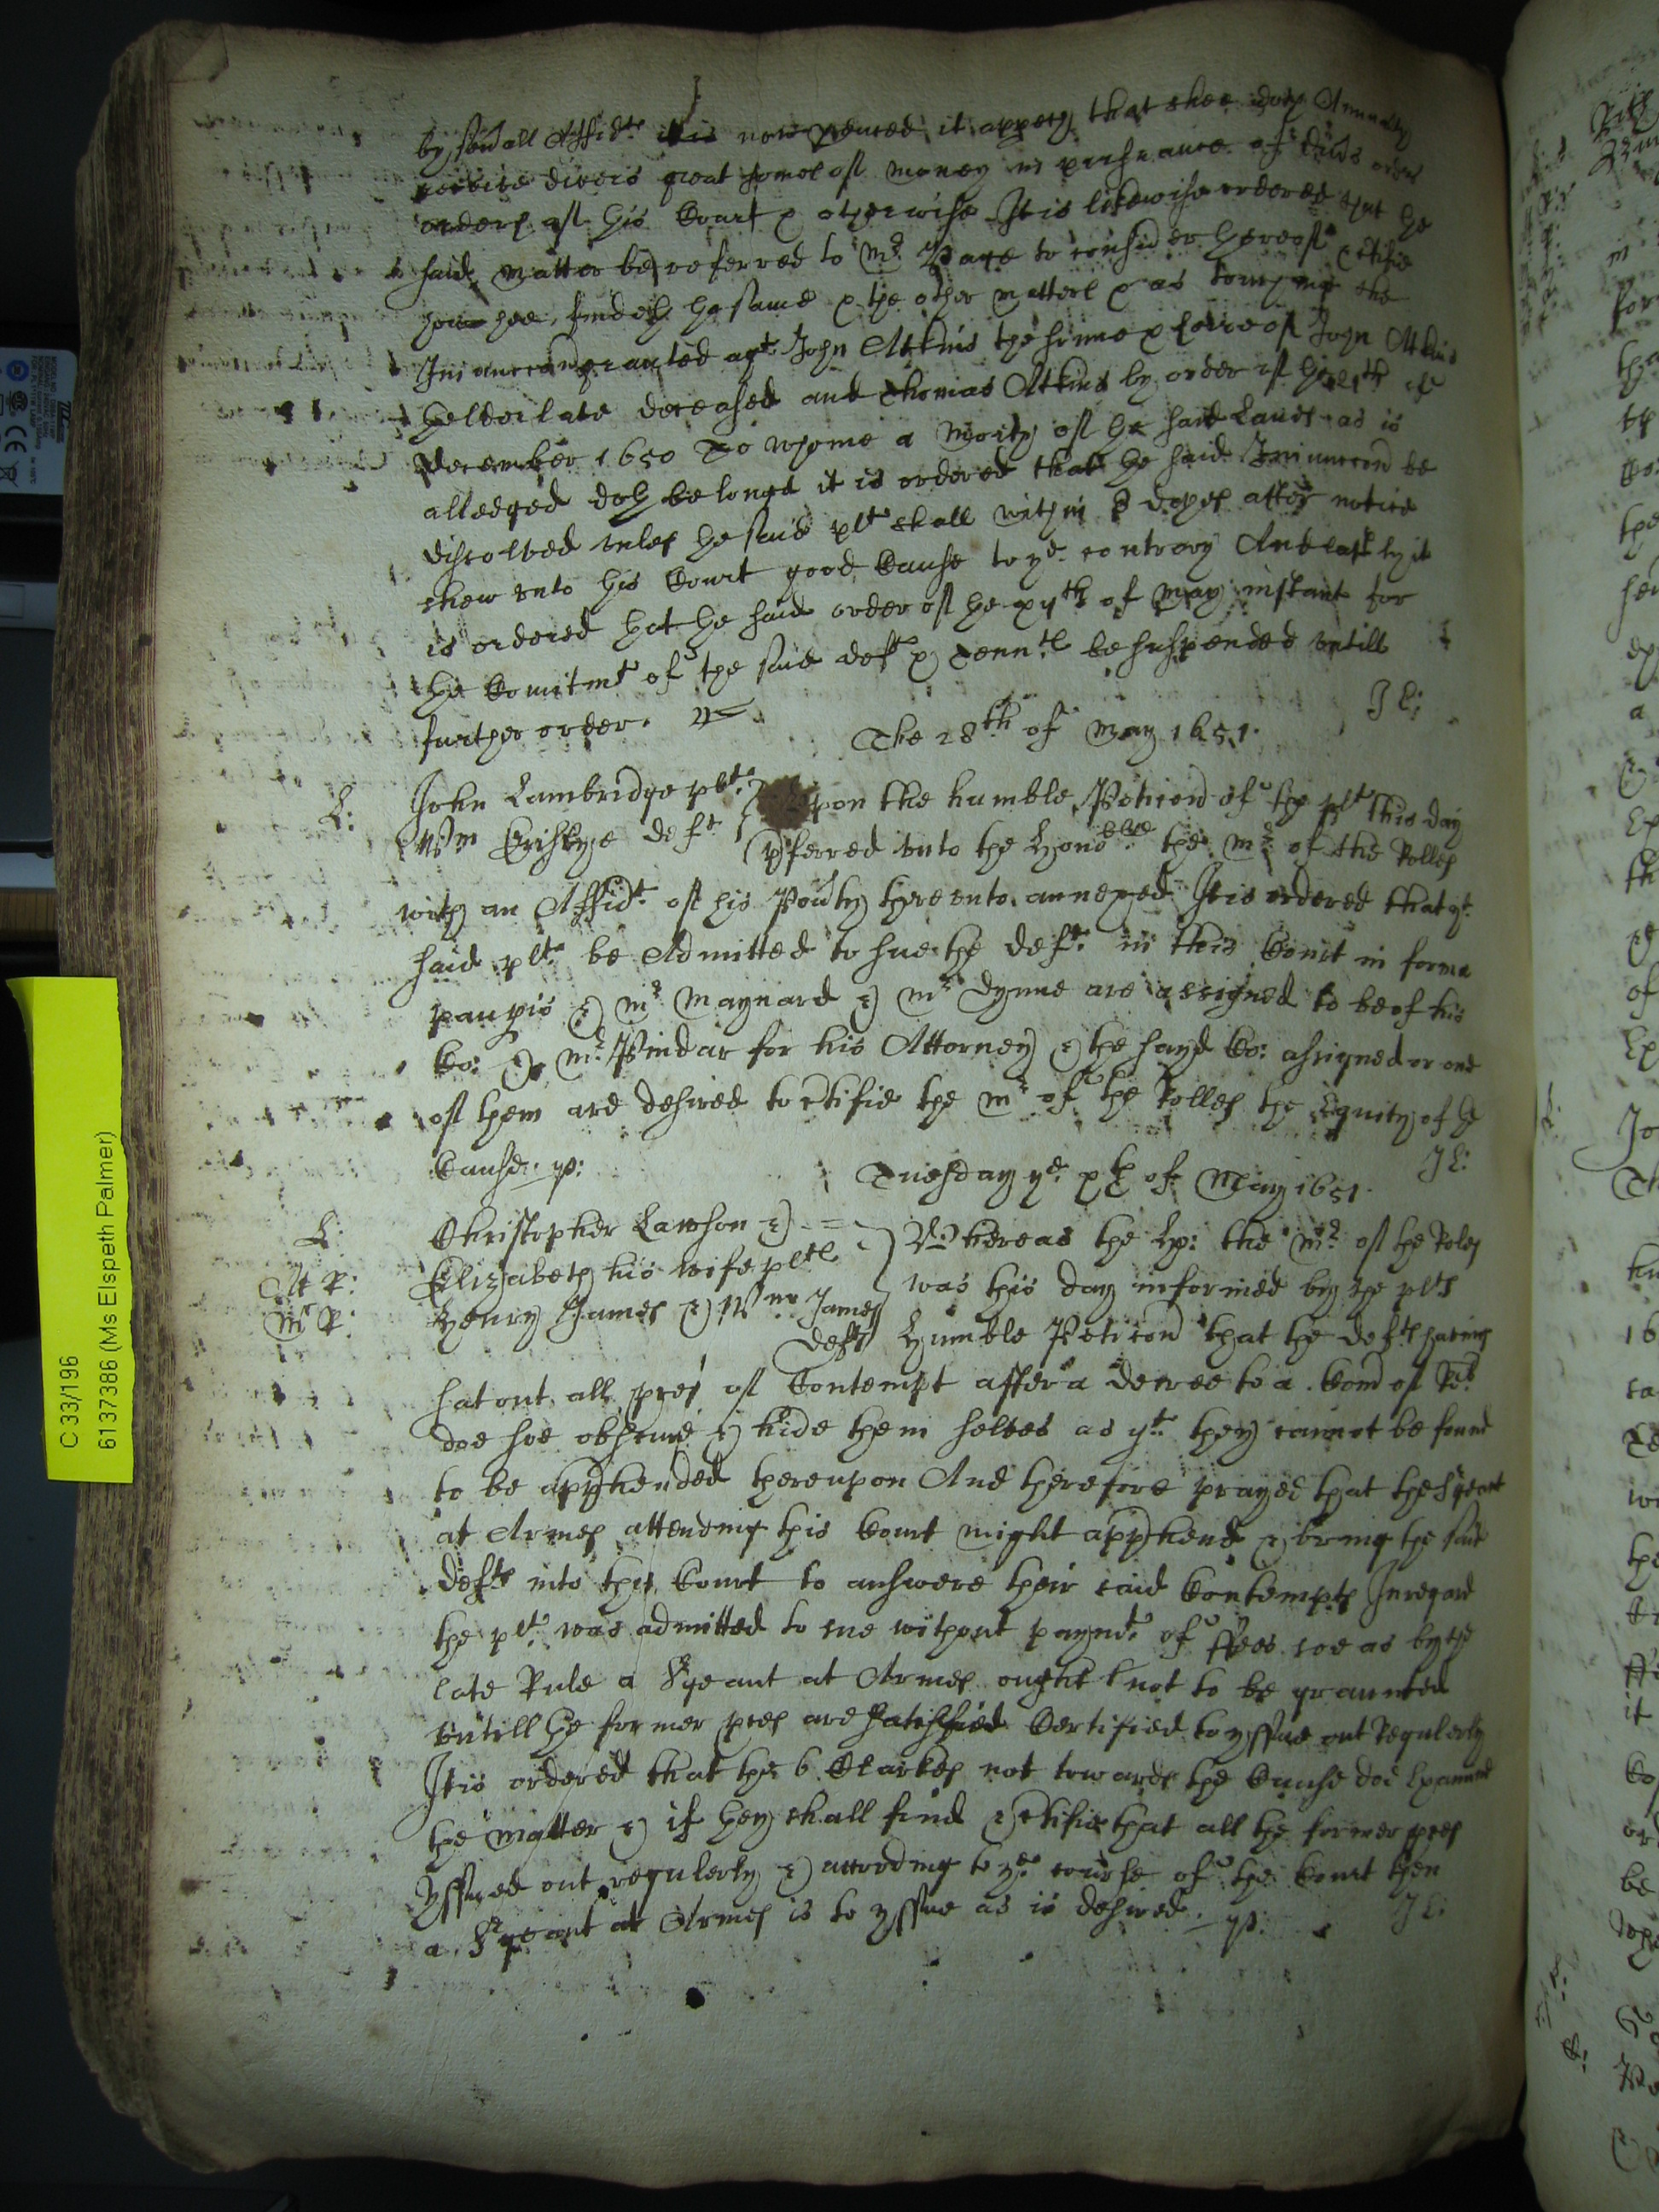 by seũall Affidts it is now pduced it appeth that shee doth Annually
receive divers great somes of money in pursuance of divs
orders of this Court & otherwise It is likewise ordered that the
said matter be referred to Mr Page to consider thereof & ctifie
how hee findeth the same & the other matters & as touching the
Iniunccon granted agt John Atkins the sonne & heire of John Atkins
thelder late deceased and Thomas Atkins by order of the
December 1650 To whome a Moity of the said Lands as is
alledged doth belonge it is ordered that the said Iniunccon be
dissolved unles the said plt shall within 8 dayes after notice
shew unto this Court good Cause to ye contrary And lastly it
is ordered that the said order of the xyth of May instant for
the Comitmt of the said deft & Tennts be suspended untill
further order.
JL:
The 28th of May 1651.
L:
John Lambridge plt
Wm deft
Upon the humble Peticon of the plt this day
pferred unto the Honoble the Mr of the Rolles
with an Affidt of his Povty thereunto annexed It is ordered that ye
said plt be Admitted to sue the deft in this Court in forma
paupis & Mr Maynard & Mr Dynne are assigned to be of his
Co: & Mr Pindar for his Attorney & the sayd Co: assigned or one
of them are desired to ctifie the Mr of the Rolles the Equity of the
Cause.
JL:
Tuesday ye xxth of May 1651.
L:
At R:
Mr R:
Christopher Lawson &
Elizabeth his wife plts
Henry James & Wm James
defts
Whereas the Lp: the Mr of the Roles
was this day informed by the plts
Humble Peticon that the defts having
sat out all pces of Contempt after a decree to a Com of Reb
doe soe obscure & hide them selves as yt they cannot be found
to be apphended thereupon And therefore prayed that the Sgeant
at Armes attending this Court might apphend & bring the said
defts into this Court to answere their said Contempts In regard
the plt was admitted to sue without paymt of ffees soe as by the
late Rule a Sgeant at Armes ought not to be graunted
untill the former pces are satisfied Certified to yssue out Regulerly
It is ordered that the 6 Clarkes not towards the Cause doe Examine
the matter & if they shall find & ctifie that all the former pces
yssued out regulerly & according to ye course of the Court then
a Sgeant at Armes is to yssue as is desired.
JL:
C 33/196
6137386 (Ms Elspeth Palmer)